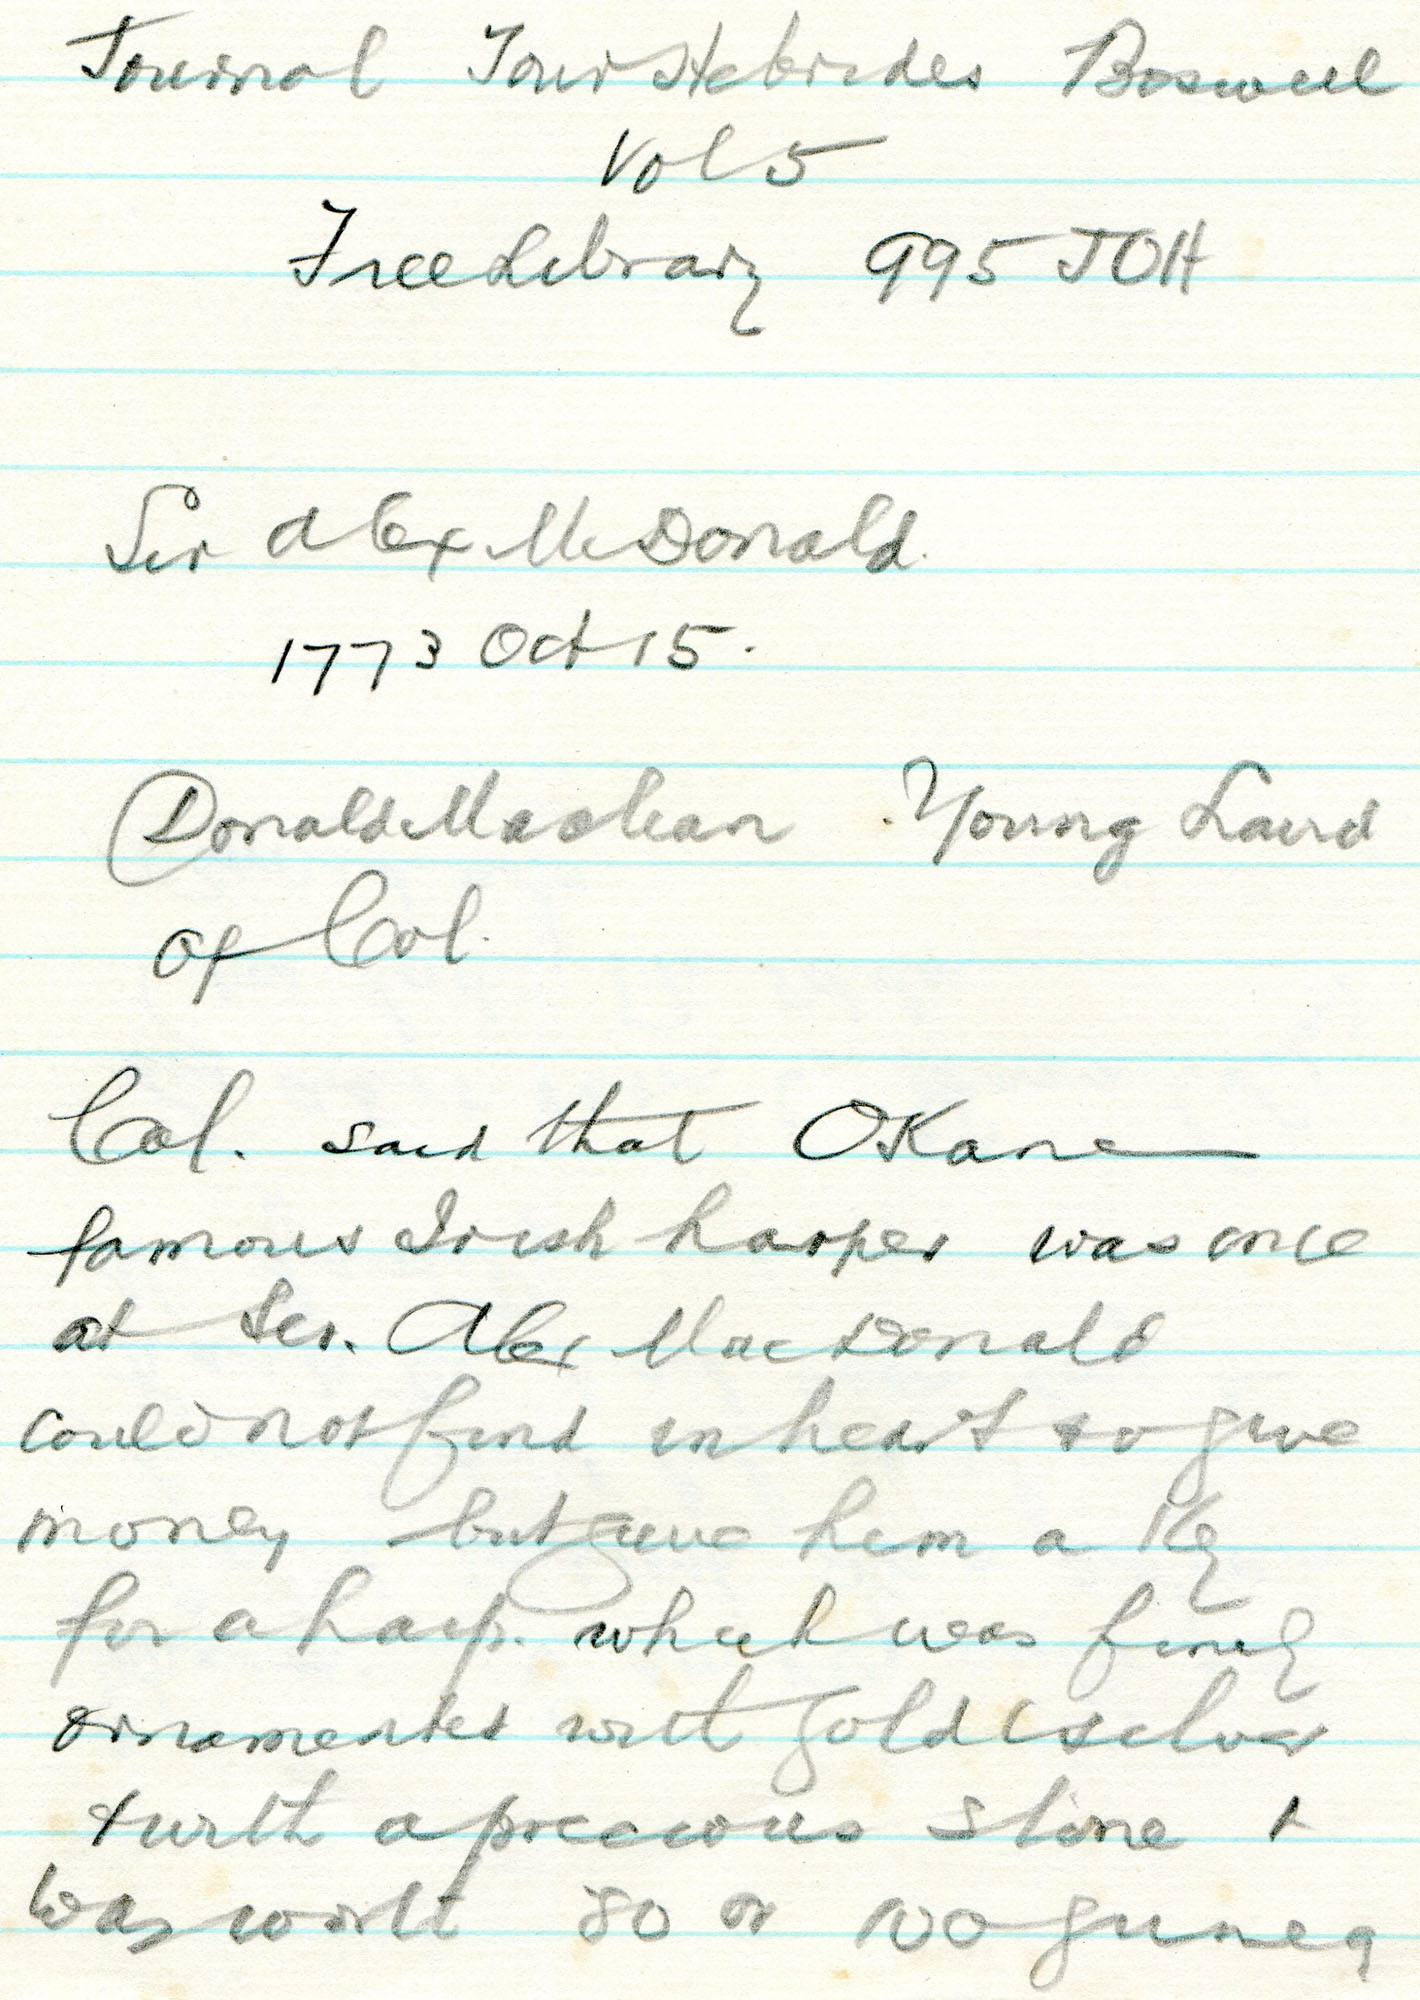 Journal Tour Hebrides Boswell
Vol 5
Free Library 995 JOH
Sir Alex McDonald.
1773 Oct 15.
Donald Maclean Young Laird
of Col.
Col. said that OKane
famous Irish harper was once
at Sir. Alex MacDonald
could not find in heart to give
money but gave him a Key
for a harp. which was finely
ornamented with gold & silver
& with a precious stone &
was worth 80 or 100 guinea